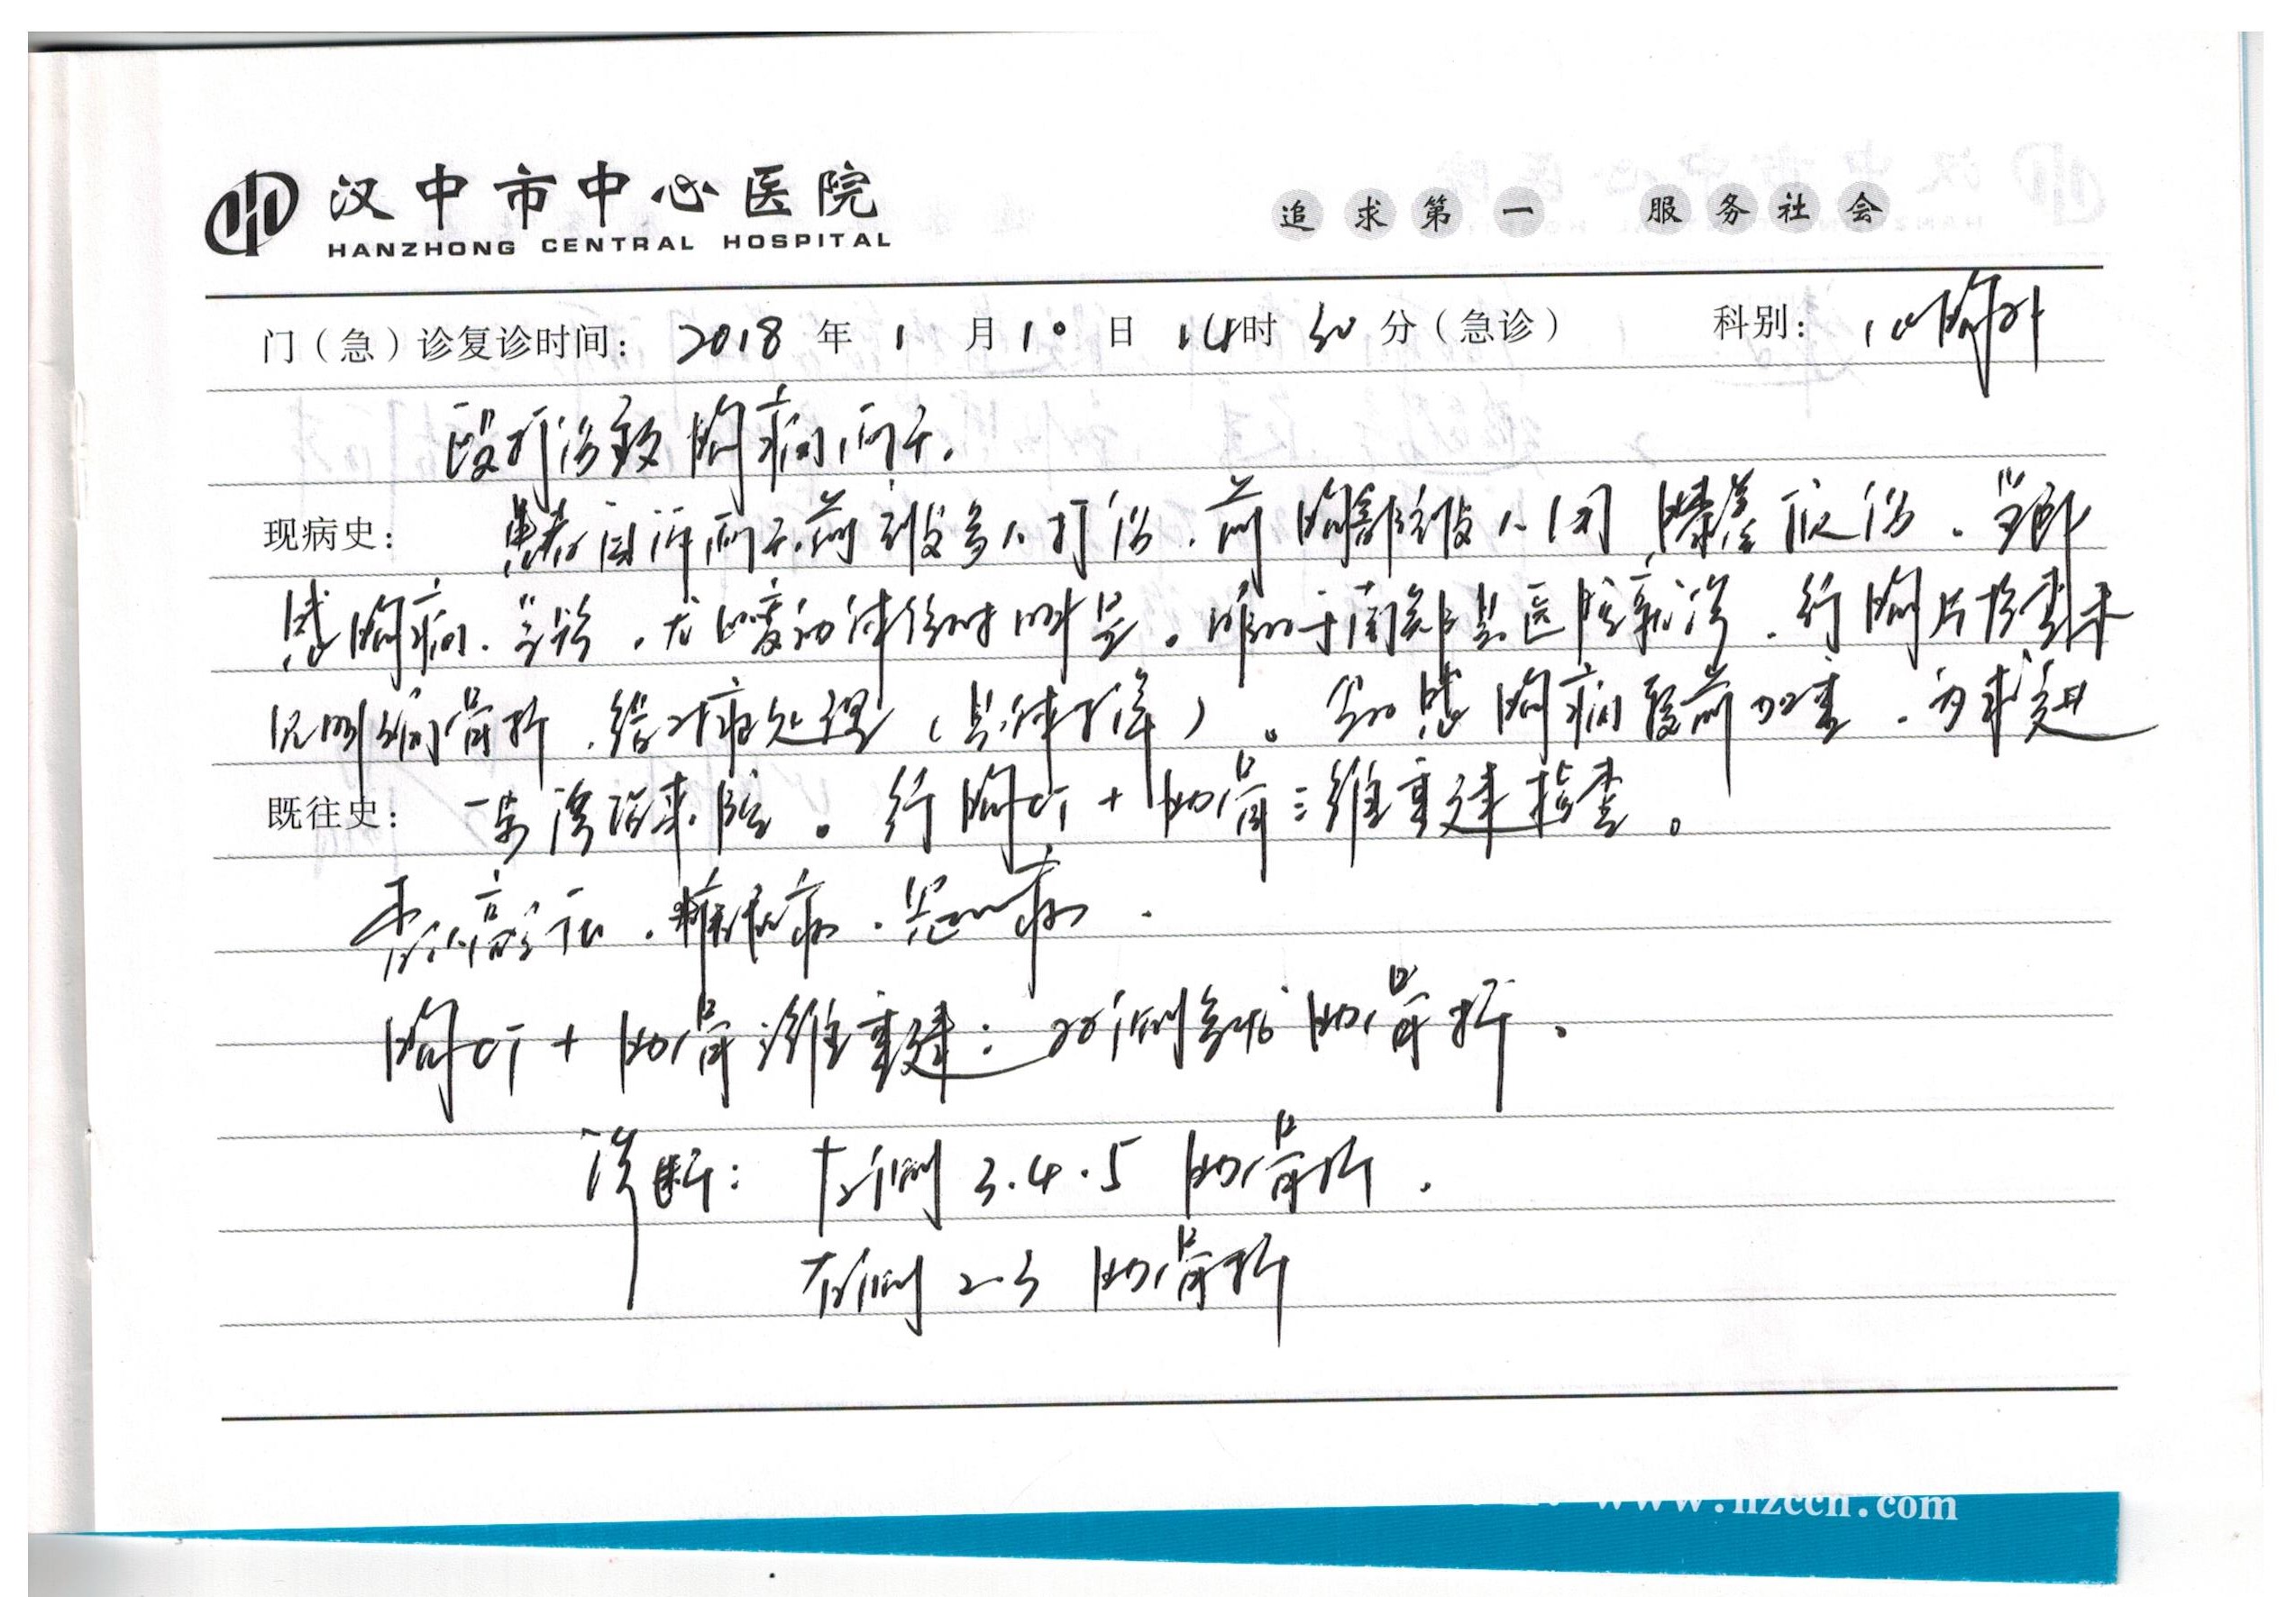 汉中市中心医院
HANZHONG CENTRAL HOSPITAL
追求第一 服务社会
门(急)诊复诊时间: 2018 年 1 月 10 日 14时 50 分(急诊) 科别: 心胸外
殴打伤致胸痛两天.
现病史: 患者自诉两天前被多人打伤,前胸部被人 伤。当即
感胸痛. ,尤以变动体位时明显。 于南郑县医院就诊,行胸片检查未
见明确骨折,给对症处理(具体不详)。 感胸痛较前加重,为求进
既往史: 一步 来院。行胸CT+肋骨三维重建检查。
否认高血压,糖尿病,冠心病.
胸CT+肋骨三维重建:双侧多发肋骨骨折。
诊断: 左侧 3.4.5 肋骨骨折.
右侧 2-3 肋骨骨折
www.hzcch.com